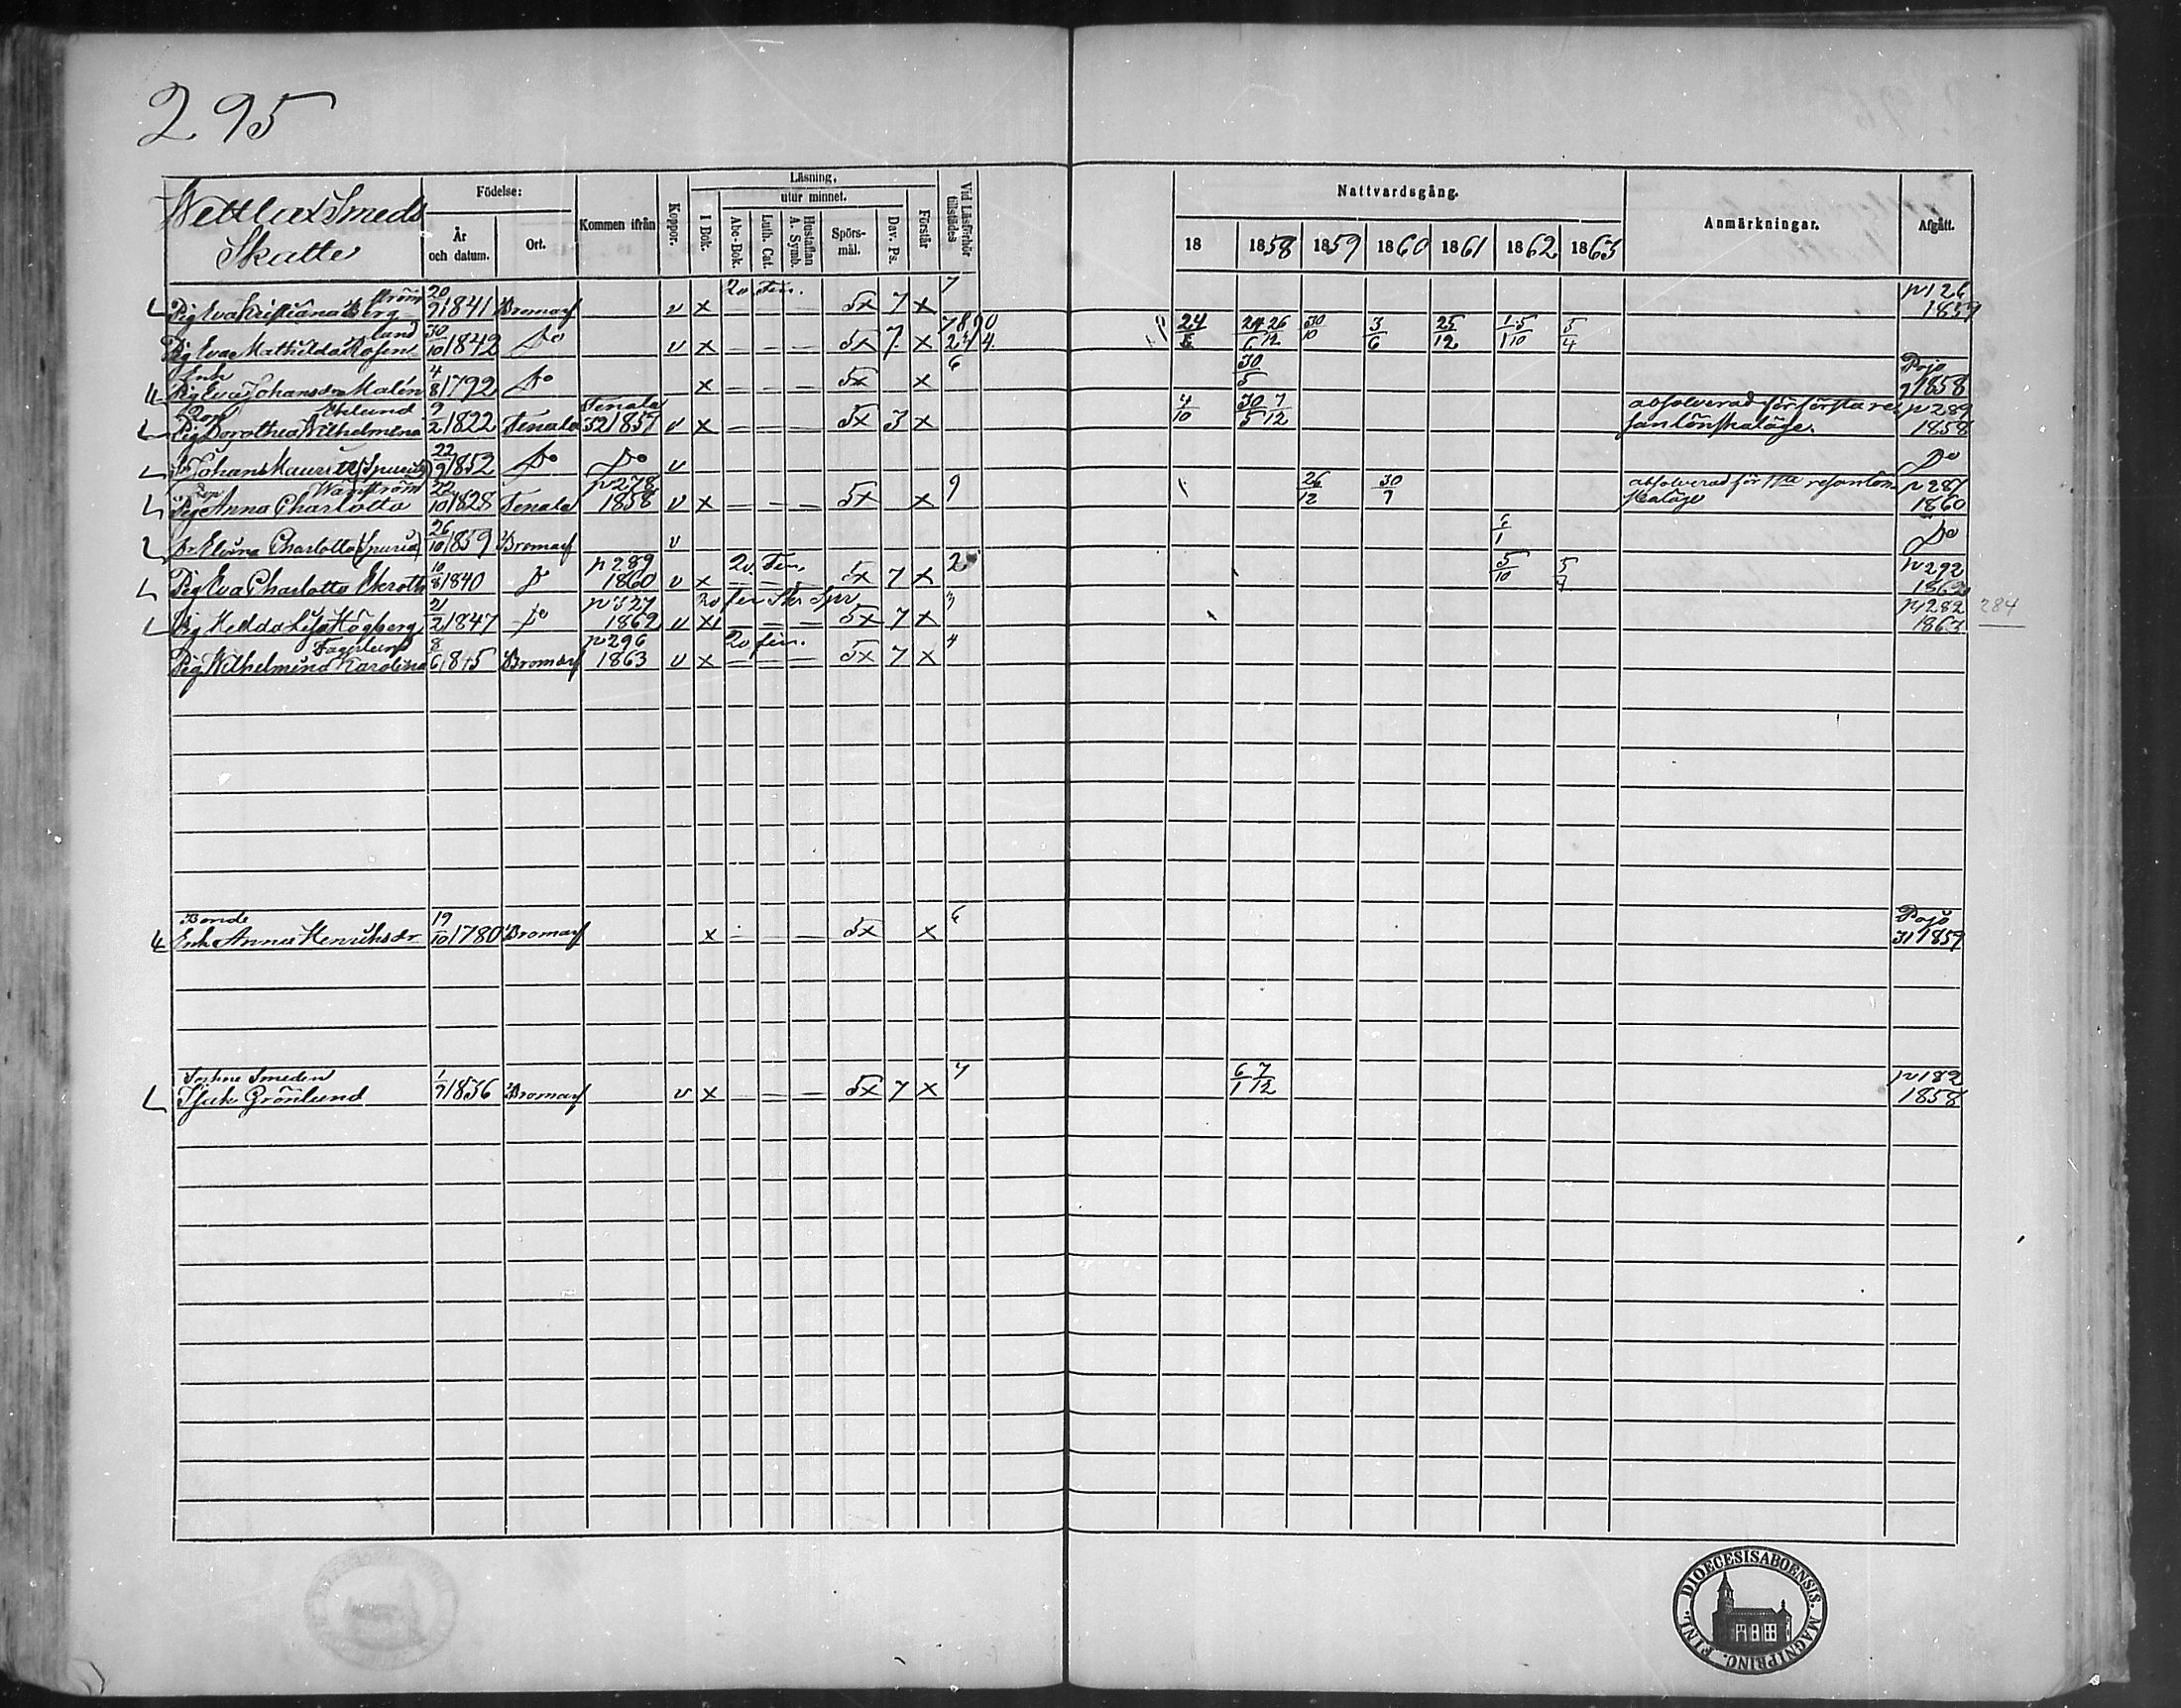 295
Wettlax Smeds
Skatte
Födelse:
År och datum.
Ort.
Kommen ifrån
Koppor.
Läsning.
I Bok.
utur minnet.
Abc-Bok.
Luth. Cat.
Hustaflan A. Symb.
Spörs-mål.
Dav. Ps.
Förstår
Vid Läsförhör tillstädes
Nattvardsgång.
18 1858 1859 1860 1861 1862 1863
Anmärkningar.
Afgått.
Pig Eva Kristiana Bergström 20/9 1841 Bromarf v x 2v. fin. 5x 7 x 7 p 126 1859
Pig Eva Mathilda Rosenlund 30/10 1842 Do v x – – – 5x 7 x 24/5 30/10 3/6 25/12 5/4
Enk
Pig Eva Johansdr Malén 4/8 1792 Do x – – – 5x x 6 30/5 Pojo 9 1858
Pig Dorothea Wilhelmina Eklund 9/2 1822 Tenala Tenala 52 1857 v x – – – 5x 3 x 4/10 30/5 7/12 absolverad för första resan lönskaläge. p 289 1858
Sr Johan Mauritz (Spurius) 22/9 1852 Do Do v Do
Pig Anna Charlotta Wänström 22/10 1828 Tenala p 278 1858 v x – – – 5x x 9 26/12 30/9 absolverad för 1sta resan lönskaläge p 287 1860
Dr Elvina Charlotta (Spuria) 26/10 1859 Bromarf v Do
Pig Eva Charlotta Ekroth 10/8 1840 Do p 289 1860 v x 2v. Fin. 5x 7 x 2 5/10 p 292 1862
Pig Hedda Lisa Högberg 21/2 1847 Do p 327 1862 v x 5x 7 x 3 p 282 1863 284
Pig Wilhelmina Karolina Fagerlund 8/6 Bromarf p 296 1863 v x 2v fin. 5x 7 x 4
Bonde
Enk. Anna Henriksdr 19/10 1780 Bromarf x – – – 5x x 6 Pojo 31 1859
Sockne Smeden
Isak Grönlund 1/9 1836 Bromarf v x – – – 5x 7 x 6/1 7/12 p 182 1858
FINL. DIOECESIS ABOENSIS. MAGNI PRINC.